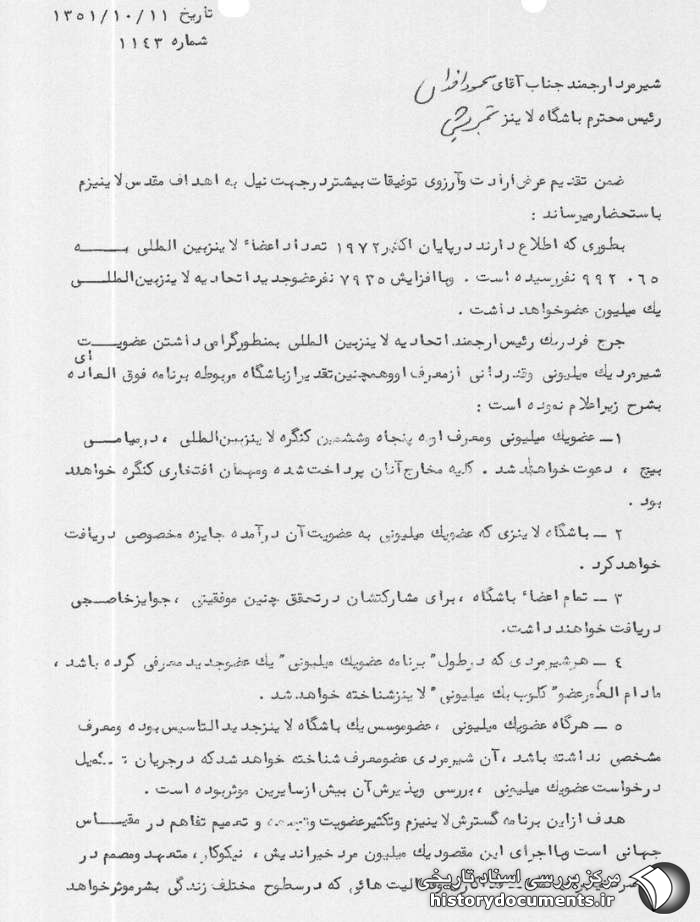 تاریخ ۱۳۵۱/۱۰/۱۱
شماره ۱۱۴۳
شیرمرد ارجمند جناب آقای محمود
رئیس محترم باشگاه لاینز
ضمن تقدیم عرض ارادت وآرزوی توفیقات بیشتر درجهت نیل به اهداف مقدس لاینیزم
باستحضار میرساند :
بطوری که اطلاع دارند در پایان اکتبر ۱۹۷۲ تعداد اعضاء لاینزبین المللی بــه
۹۹۲ ۰۶۵ نفر رسیده است . وباافزایش ۷۹۳۵ نفر عضوجدید اتحادیه لاینزبین‌المللــی
یك میلیون عضوخواهد داشت .
جرج فردریك رئیس ارجمند اتحادیه لاینزبین المللی بمنظور گرامی داشتن عضویــت
شیرمرد یك میلیونی وقدردانی ازمعرف اووهمچنین تقدیر ازباشگاه مربوطه برنامه فوق العاده ای
بشرح زیر اعلام نموده است :
۱ــ عضویك میلیونی ومعرف او به پنجاه وششمین کنگره لاینزبین‌المللی ، درمیامــی
بیچ ، دعوت خواهند شد . کلیه مخارج آنان پرداخت شده ومهمان افتخاری کنگره خواهند
بود .
۲ ــ باشگاه لاینزی که عضویك میلیونی به عضویت آن درآمده جایزه مخصوصی دریافت
خواهد کرد .
۳ ــ تمام اعضاء باشگاه ، برای مشارکتشان درتحقق چنین موفقیتی ، جوایزخاصــی
دریافت خواهند داشت.
٤ ــ هرشیرمردی که درطول" برنامه عضویك میلیونی" یك عضوجدید معرفی کرده باشد ،
مادام العمر عضو" کلوب یك میلیونی" لاینزشناخته خواهد شد .
۵ ــ هرگاه عضویك میلیونی ، عضوموسس یك باشگاه لاینزجدید التاسیس بوده ومعرف
مشخصی نداشته باشد ، آن شیرمردی عضومعرف شناخته خواهد شدکه درجریان تکمیل
درخواست عضویك میلیونی ، بررسی وپذیرش آن بیش ازسایرین موثربوده است .
هدف ازاین برنامه گسترش لاینیزم وتکثیرعضویت وتوسعه و تعمیم تفاهم در مقیــاس
جهانی است وبااجرای این مقصود یك میلیون مرد خیراندیش ، نیکوکار، متعهد ومصمم در
که درسطوح مختلف زندگی بشر موثرخواهد
مرکز بررسی اسناد تاریخی
historydocuments.ir